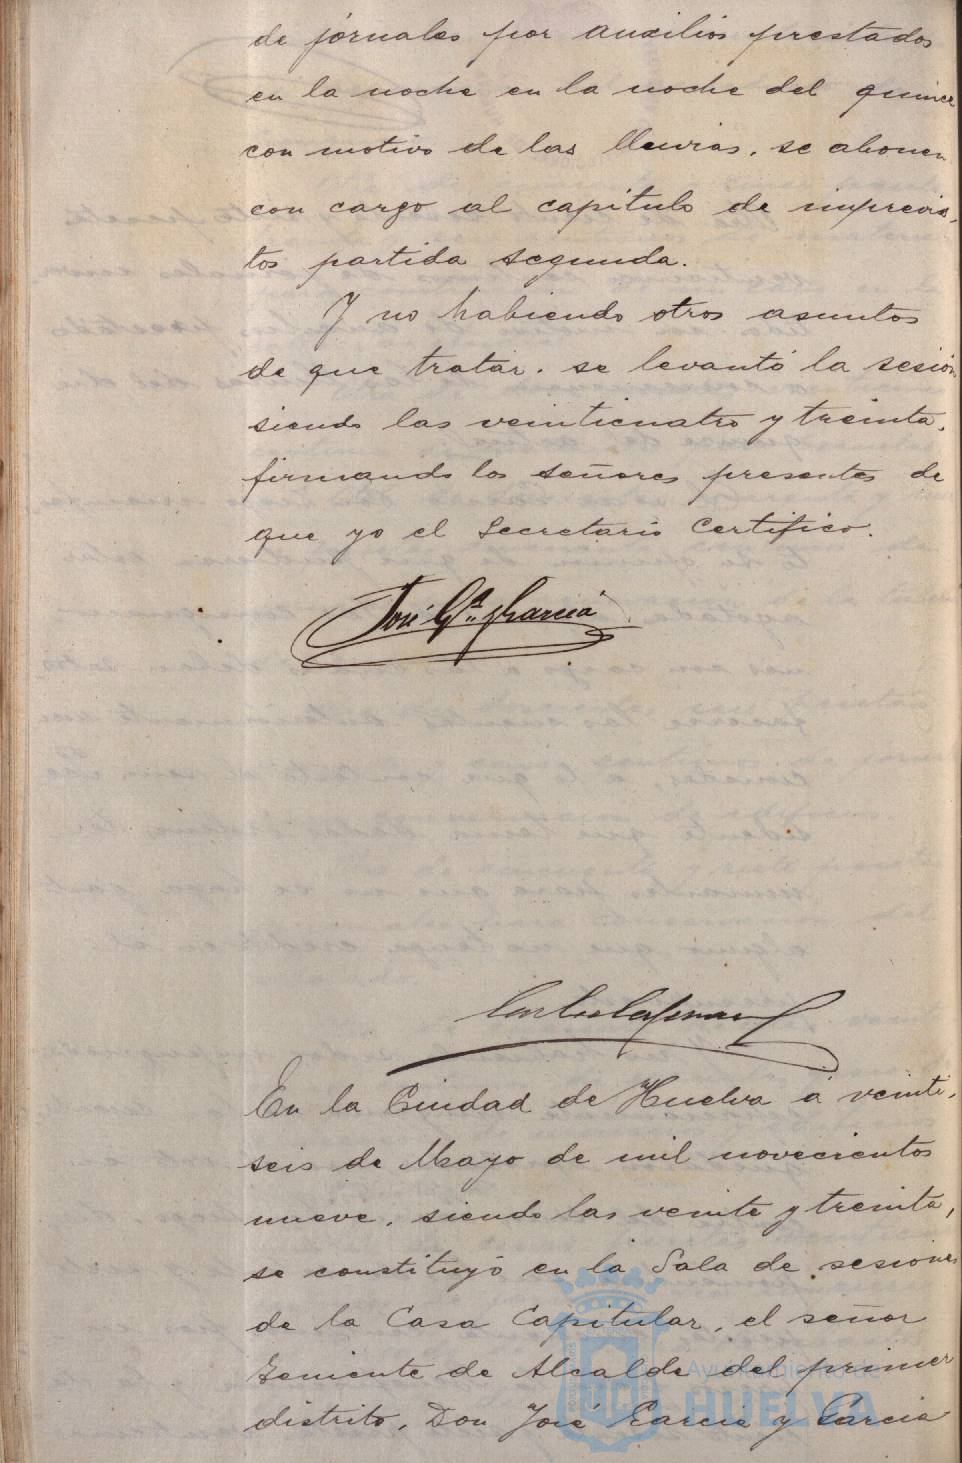 de jornales por auxilios prestados
en la noche en la noche del quince
con motivo de las lluvias, se abonen
con cargo al capitulo de imprevis-
tos partida segunda.
Y no habiendo otros asuntos
de que tratar, se levantó la sesión
siendo las veinticuatro y treinta,
firmando los señores presentes de
que yo el Secretario Certifico.
José Gª y García
En la Ciudad de Huelva á veinti-
seis de Mayo de mil novecientos
nueve, siendo las veinte y treinta,
se constituyó en la Sala de sesiones
de la Casa Capitular, el señor
Teniente de Alcalde del primer
distrito, Don José Garcia y Garcia
Ayuntamiento de
HUELVA